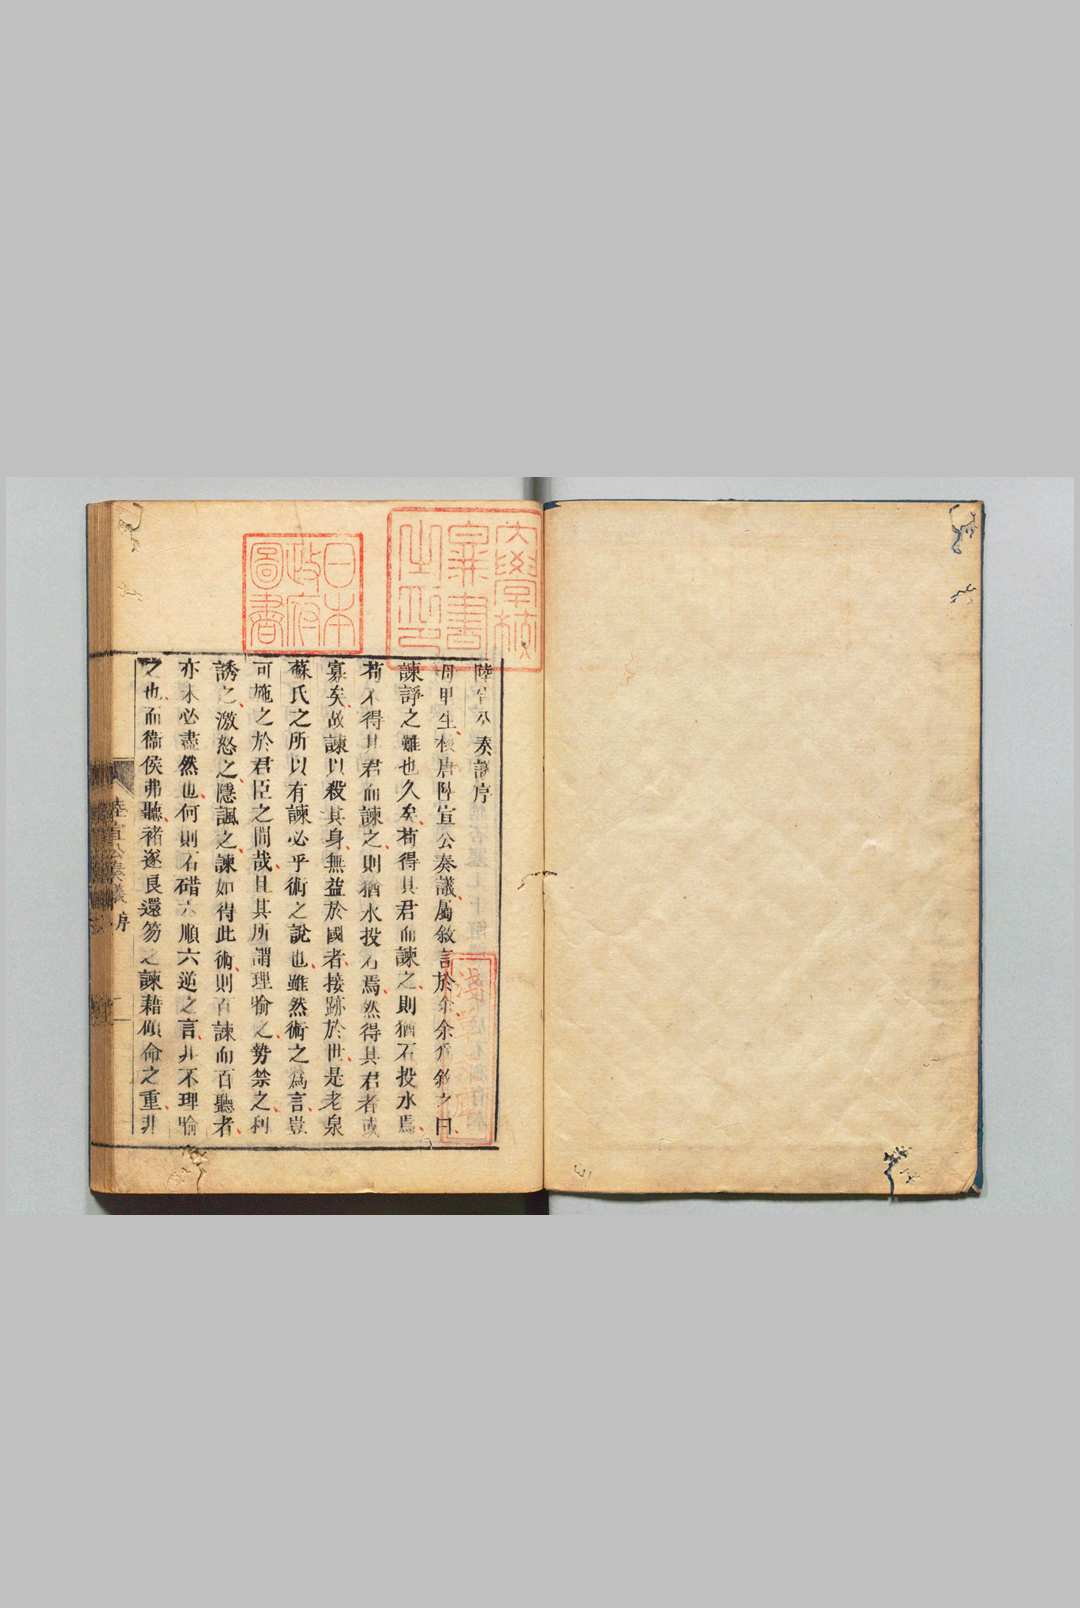 陸宣公奏議序
周甲生校唐陸宣公奏議屬敘言於余余為敘之曰
諫諍之難也久矣苟得其君而諫之則猶石投水焉
苟不得其君而諫之則猶水投石焉然得其君者或
寡矣故諫以殺其身無益於國者接跡於世是老泉
蘇氏之所以有諫必乎術之說也雖然術之為言豈
可施之於君臣之間哉且其所謂理喻之勢禁之利
誘之激怒之隱諷之諫如得此術則百諫而百聽者
亦未必盡然也何則石碏六順六逆之言非不理喻
之也而衞侯弗聽褚遂良還笏之諫藉顧命之重非
陸宣公奏議 序 一
大學校
圖書
之印
日本
政府
圖書